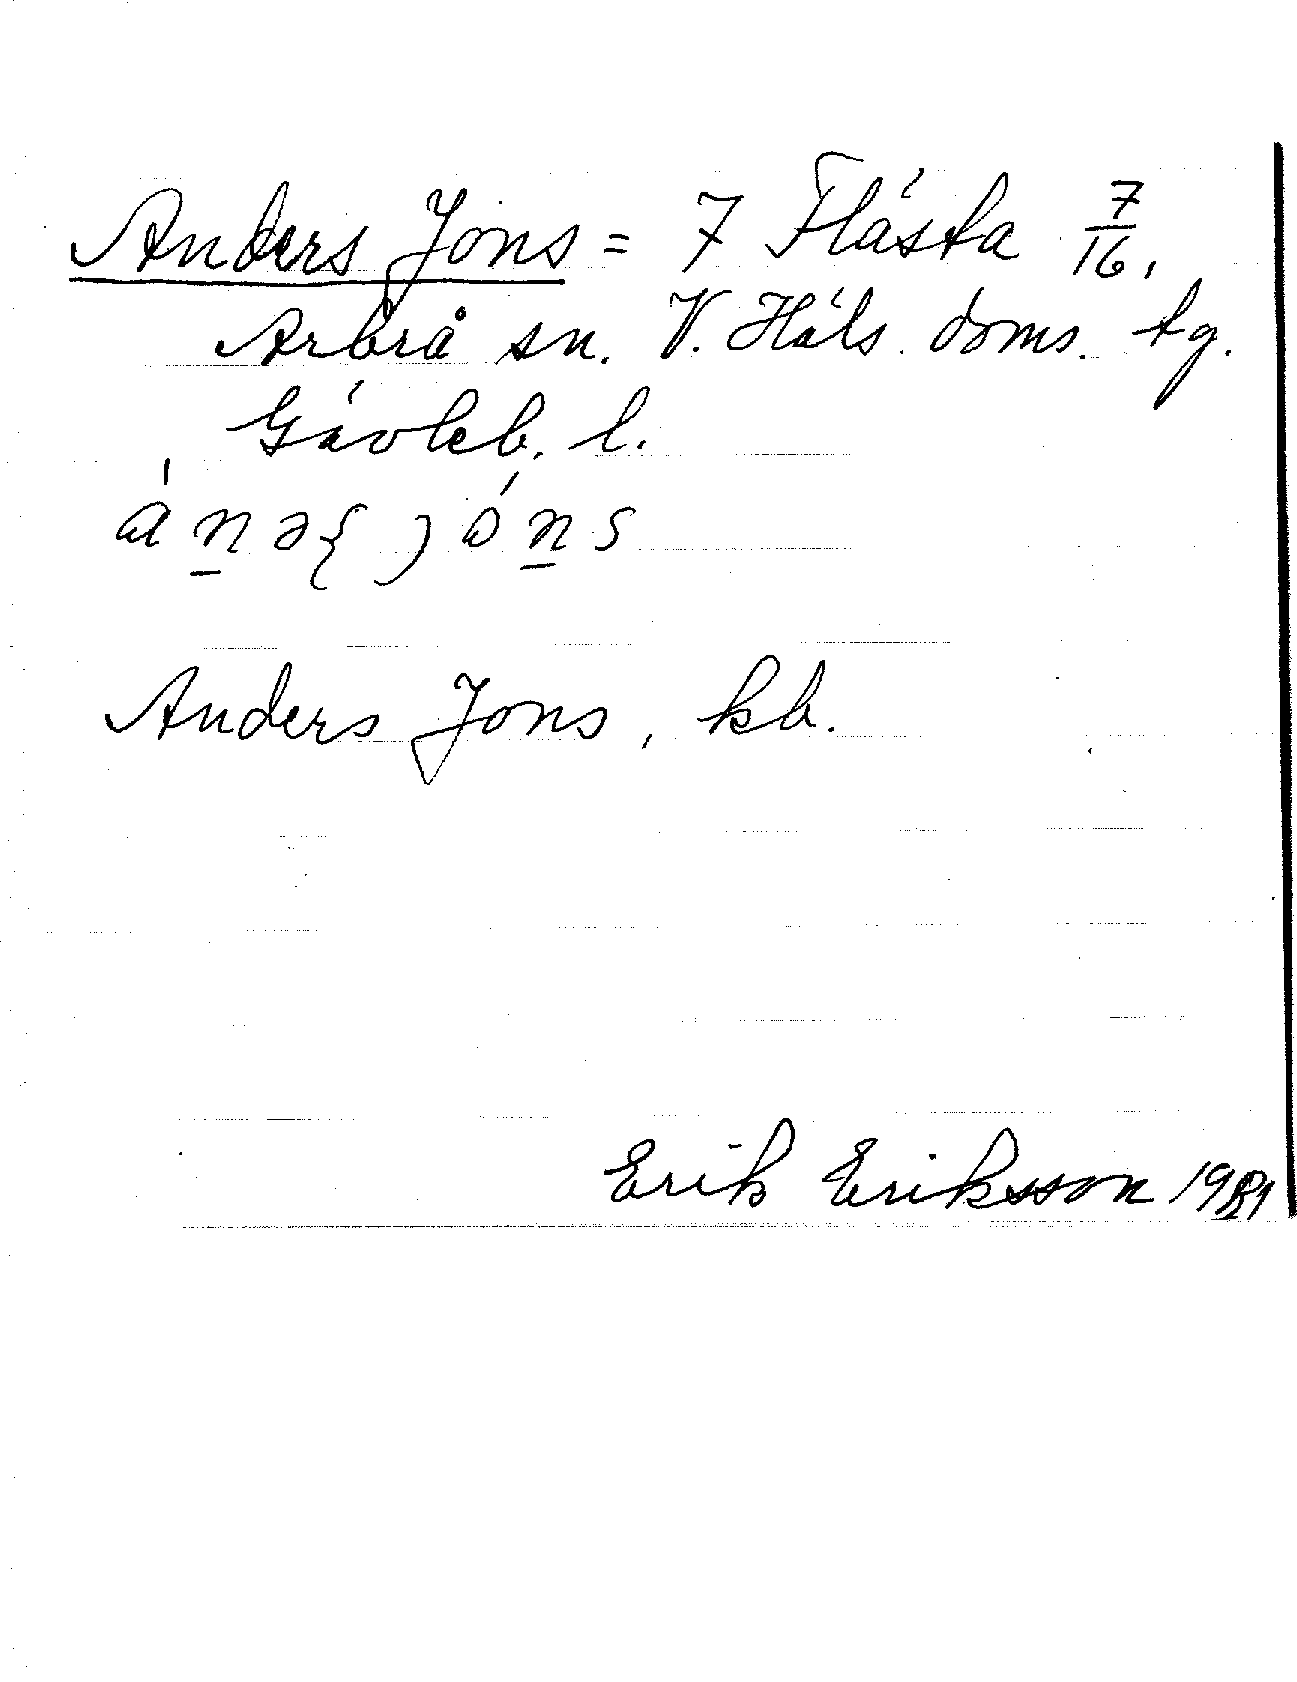 Anders Jons = 7 Flästa 7/16,
Arbrå sn. V. Häls. doms. tg.
Gävleb. l.
ánəʃ jóns
Anders Jons, kb.
Erik Eriksson 1981